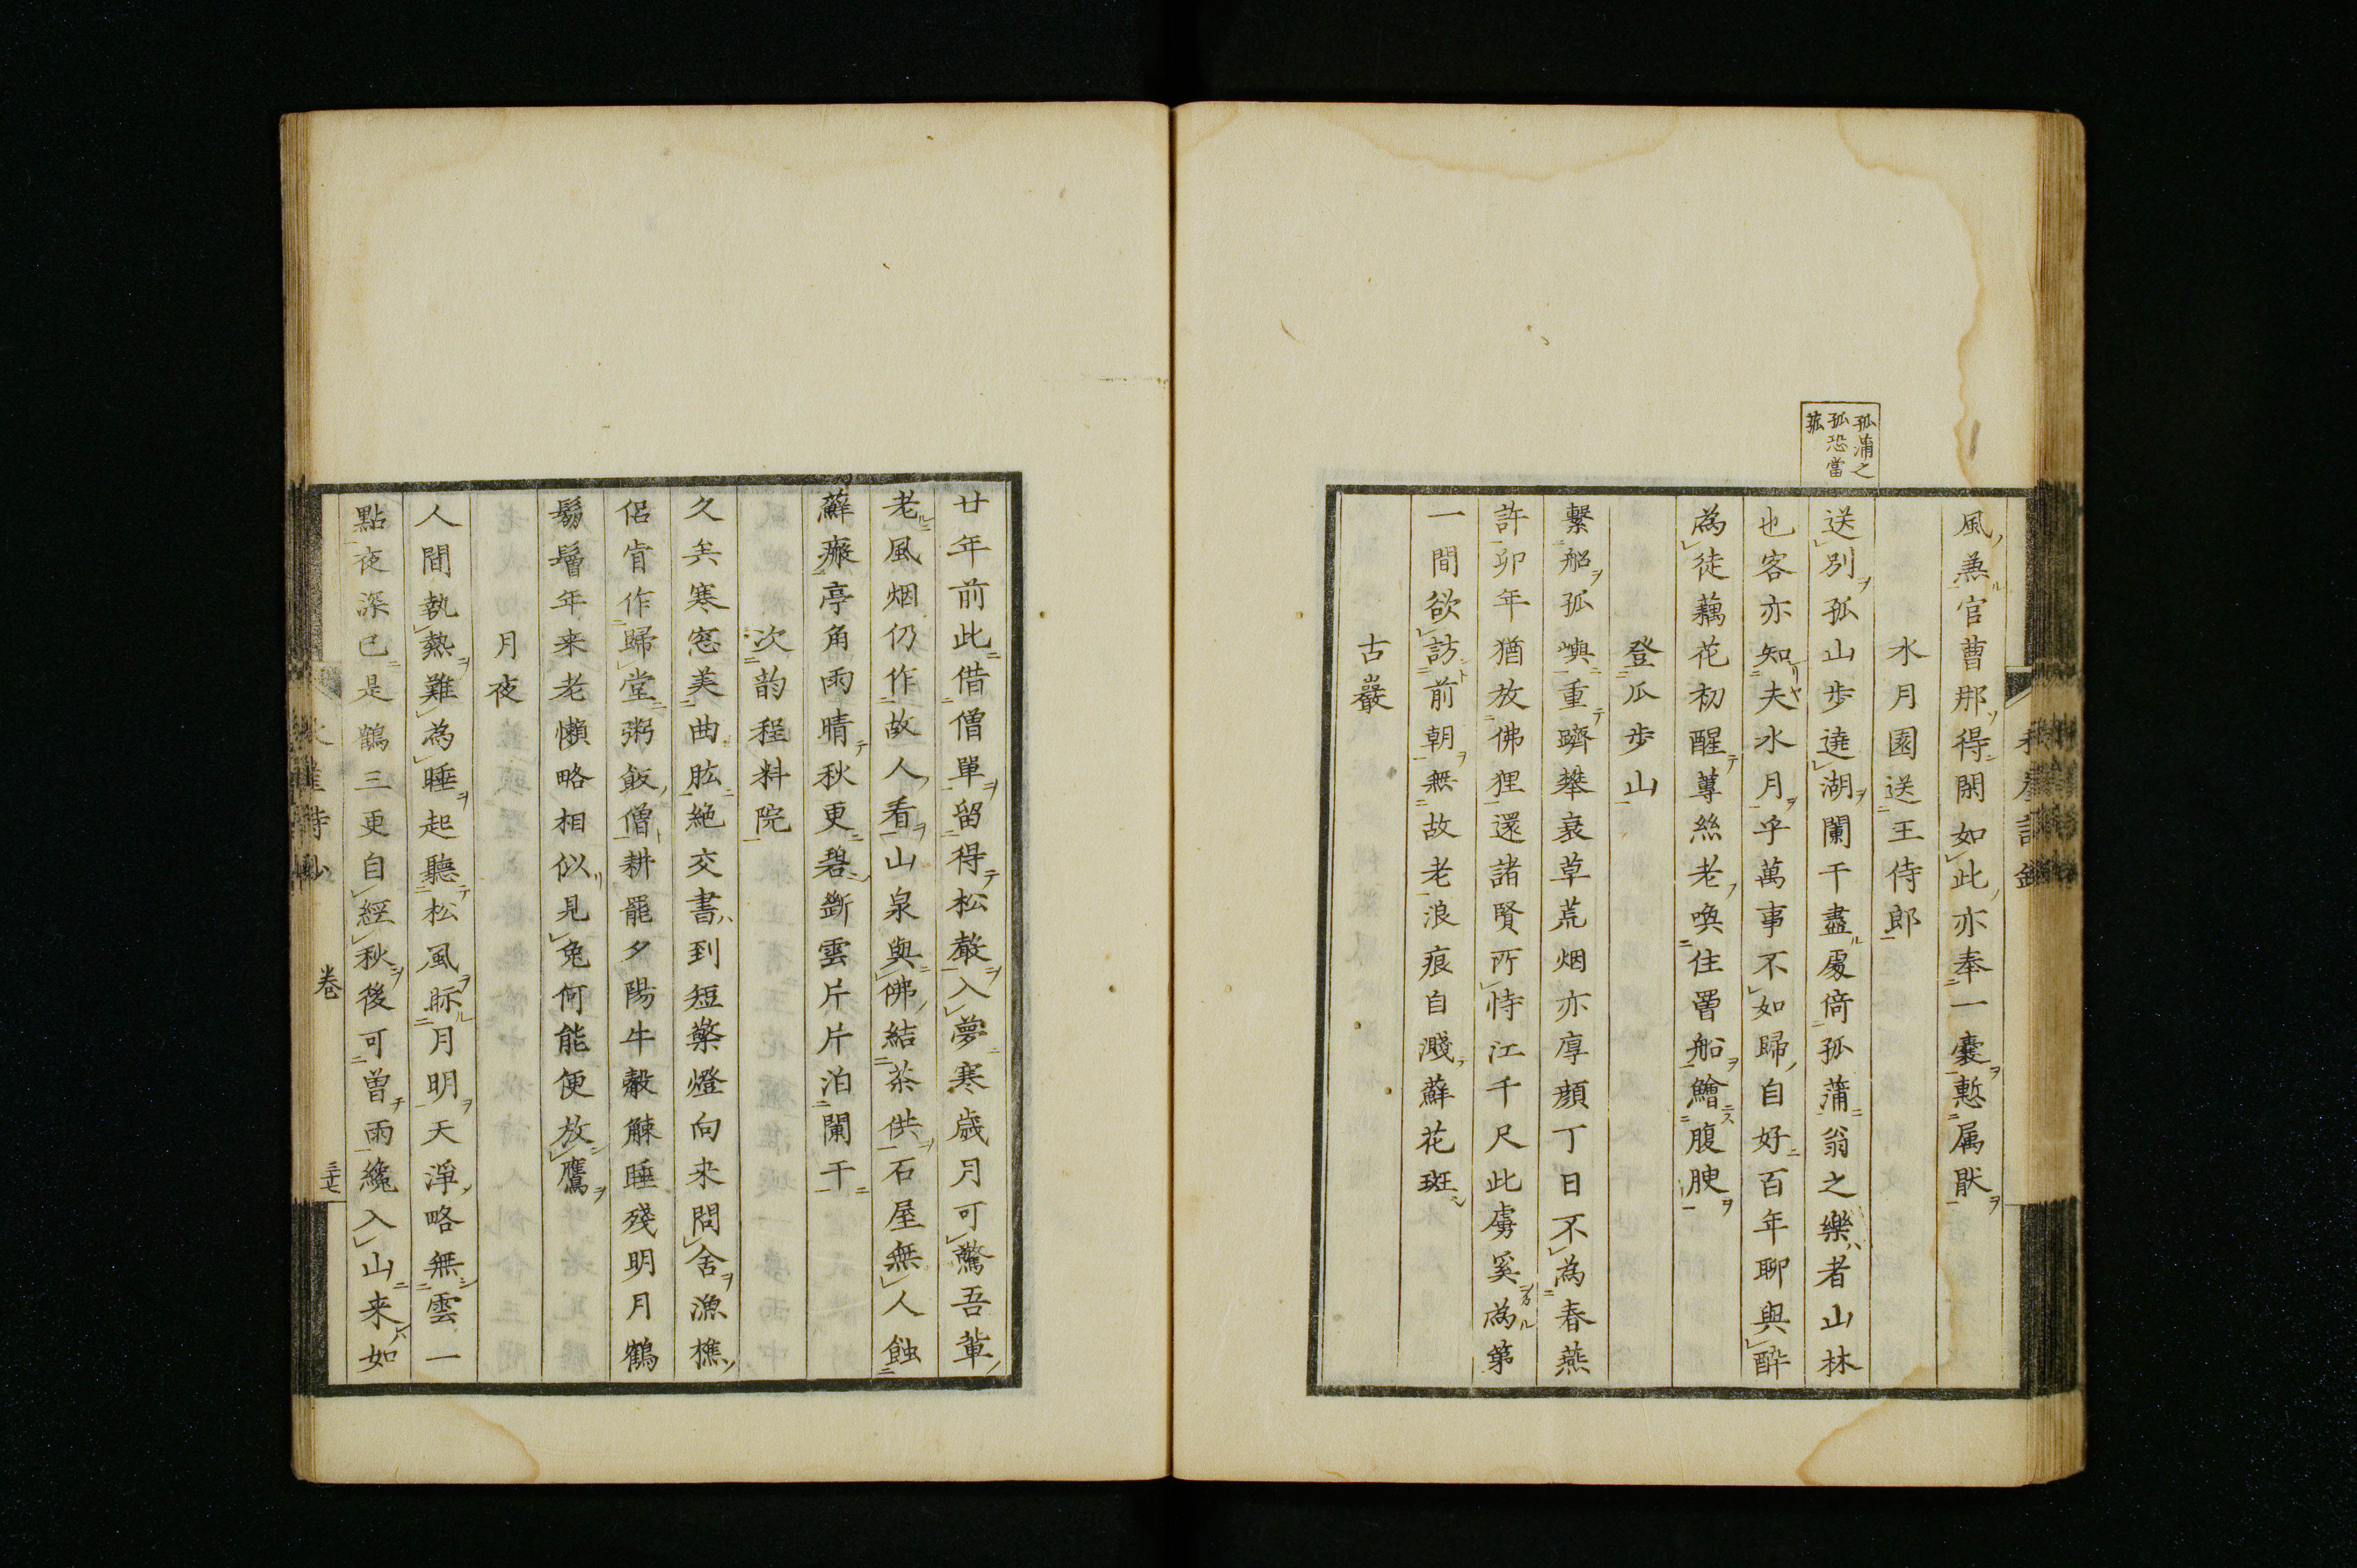 孤蒲之
孤恐當
菰
風兼官曹那得閑如此亦奉一囊慙属厭
水月園送王侍郎
送別孤山步遶湖闌干盡處倚孤蒲翁之樂者山林
也客亦知夫水月乎萬事不如歸自好百年聊與酔
為徒藕花初醒蓴絲老喚住罾船鱠腹腴
登瓜步山
繫船孤嶼重躋攀衰草荒烟亦厚顔丁日不為春燕
許卯年猶放佛狸還諸賢所恃江千尺此虜奚為第
一間欲訪前朝無故老浪痕自濺蘚花斑
古巖
廿年前此借僧單留得松巖入夢寒歳月可驚吾輩
老風烟仍作故人看山泉與佛結茶供石屋無人蝕
蘚瘢亭角雨晴秋更碧斷雲片片泊闌干
次韵程料院
久矣寒窓美曲肱絶交書到短檠燈向来問舍漁樵
侶肯作歸堂粥飯僧耕罷夕陽牛觳觫睡殘明月鶴
鬅鬙年来老懶略相似見兔何能便放鷹
月夜
人間執熱難為睡起聽松風眎月明天淨略無雲一
點夜深已是鶴三更自經秋後可曽雨纔入山来如
卷
三十七